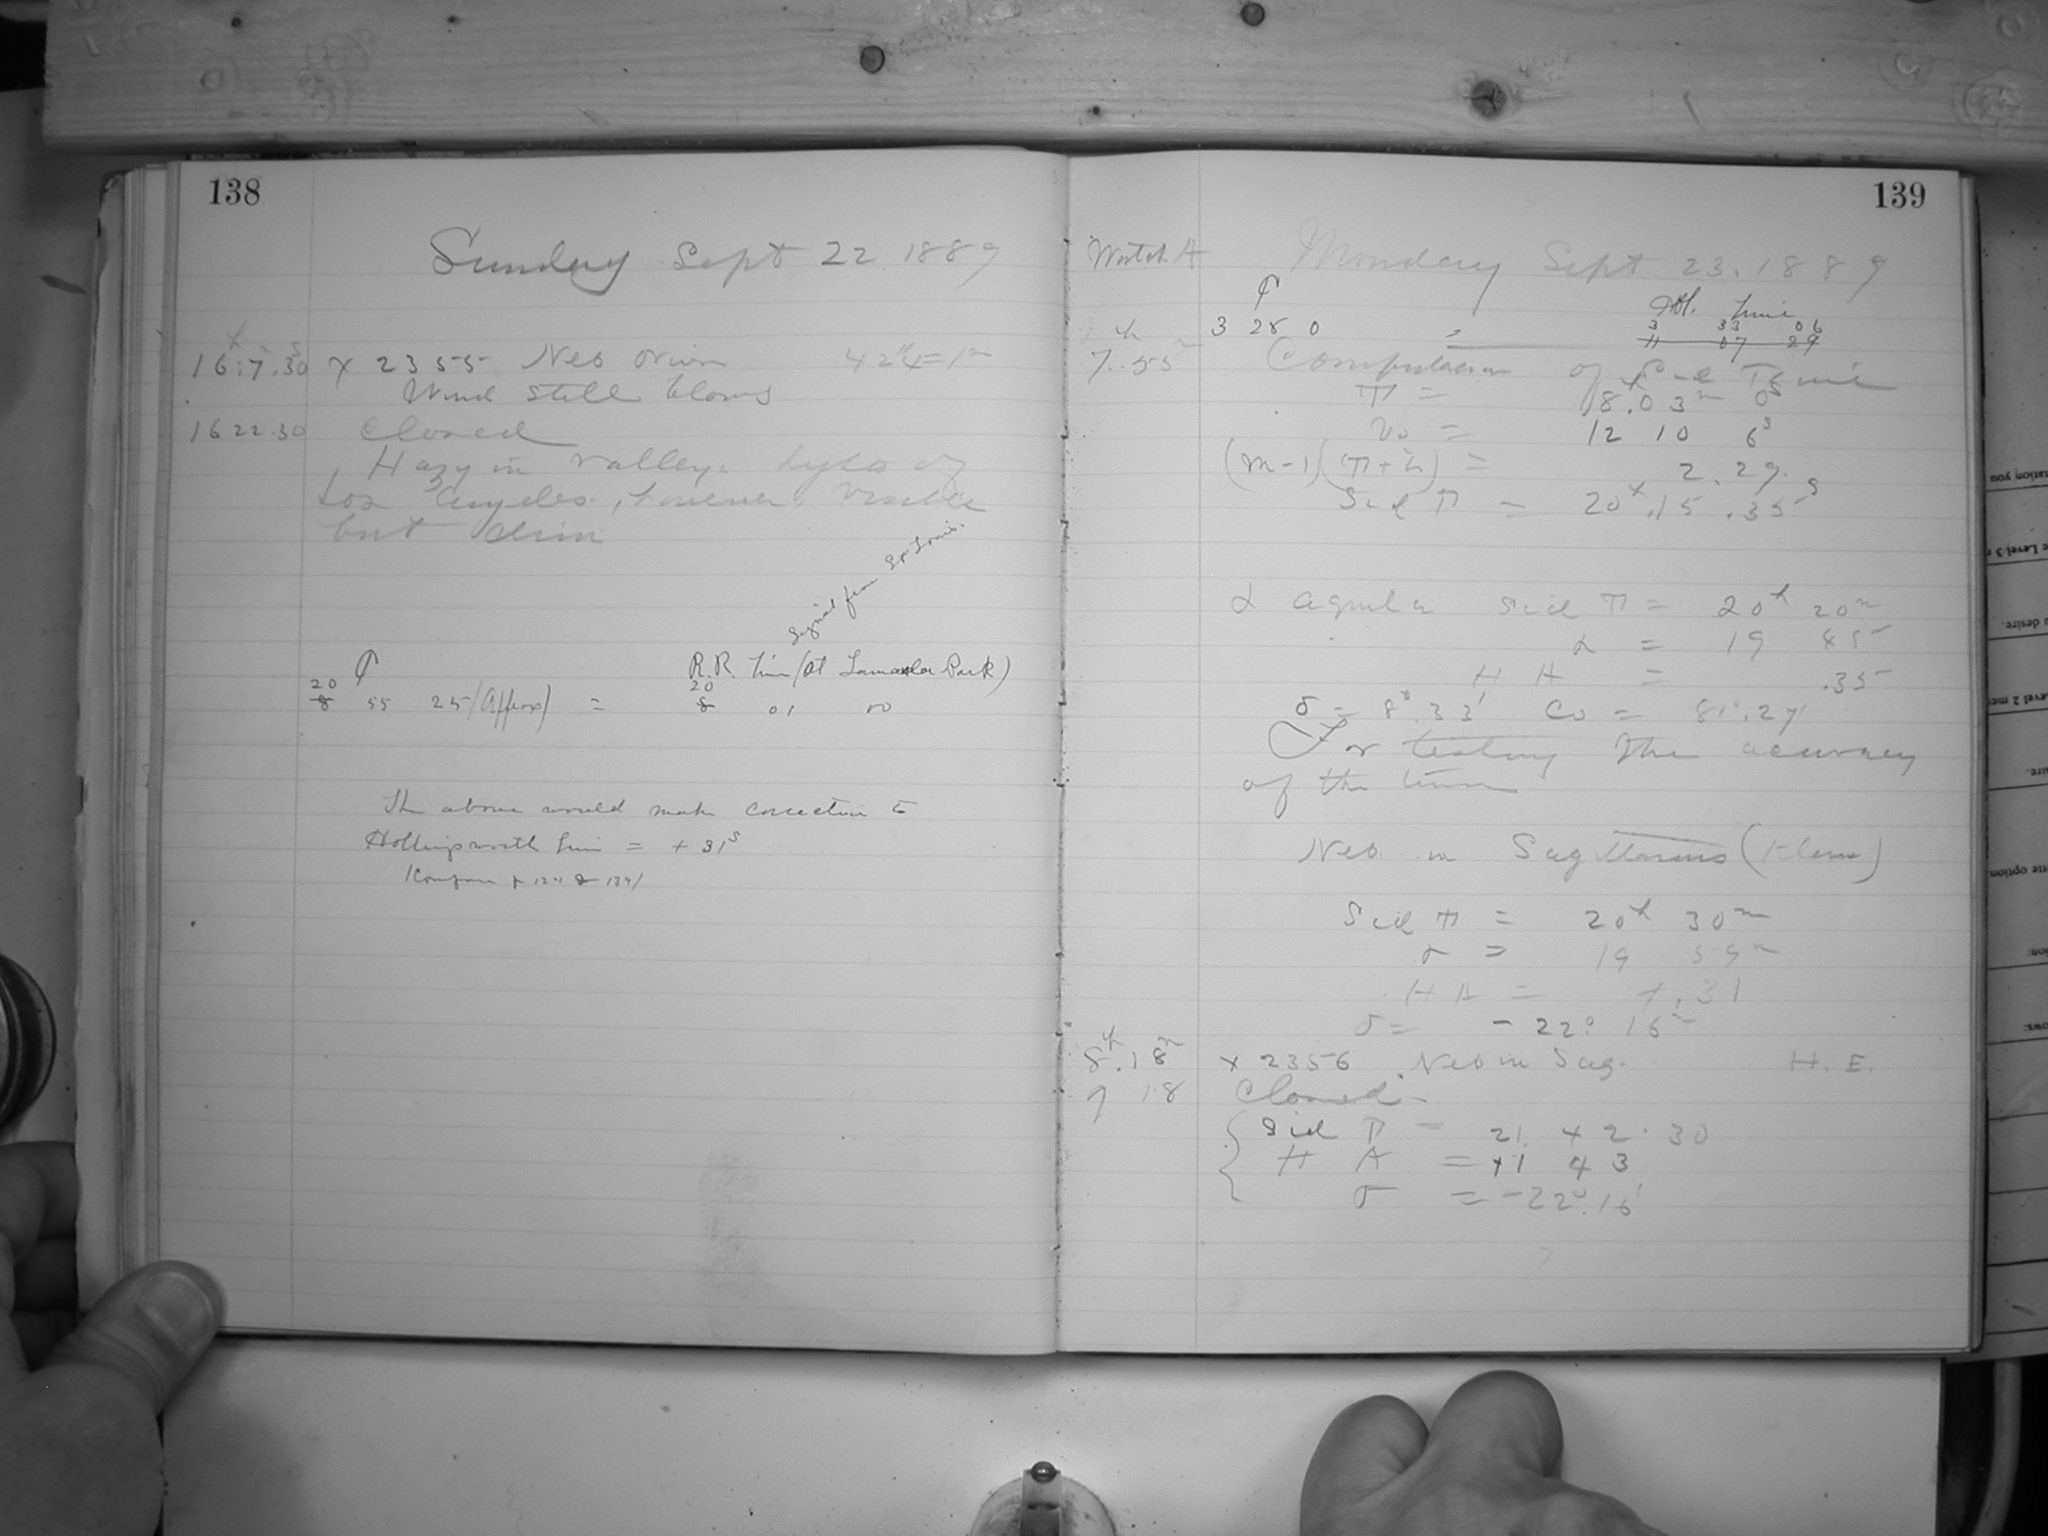 138
Sunday Sept 22. 1889
h m s
16:7.30 x 2355 Neb Orion 42
Wind still blows
16 22.30 Closed
Hazy in valley. Lights of
Los Angeles, however, visible
but dim
Signal from St. Louis.
R.R. Time (at Lamanda Park)
20 20
8 55 25 (Approx) = 8 01 00
The above would make correction to
Hollingsworth time = + 31s
139
Watch A Monday Sept 23. 1889
Time
3 28 0 = 3 33 06
11 07 29
7.55 Computation of Sid Time
T = 8h.03m 0s
12 10 6s
(m-1)(T+L) = 2.29.
Sid T = 20h.15.35s
α Aquila Sid T = 20h 20m
α = 19 45
H A = .35
δ = 8°.33' Co = 81°.27'
For testing the accuracy
of the time
Neb. in Sagittarius (Klein)
Sid T = 20h 30m
= 19 59m
H A = +.31
δ = - 22° 16
8h.18m x 2356 Neb in Sag. H. E.
9 18 Closed -
Sid T = 21 42.30
H A = +1 43
δ = -22°.16'
ation you
e Level 3
desire.
evel 2
ire.
tte option
ion:
ows: